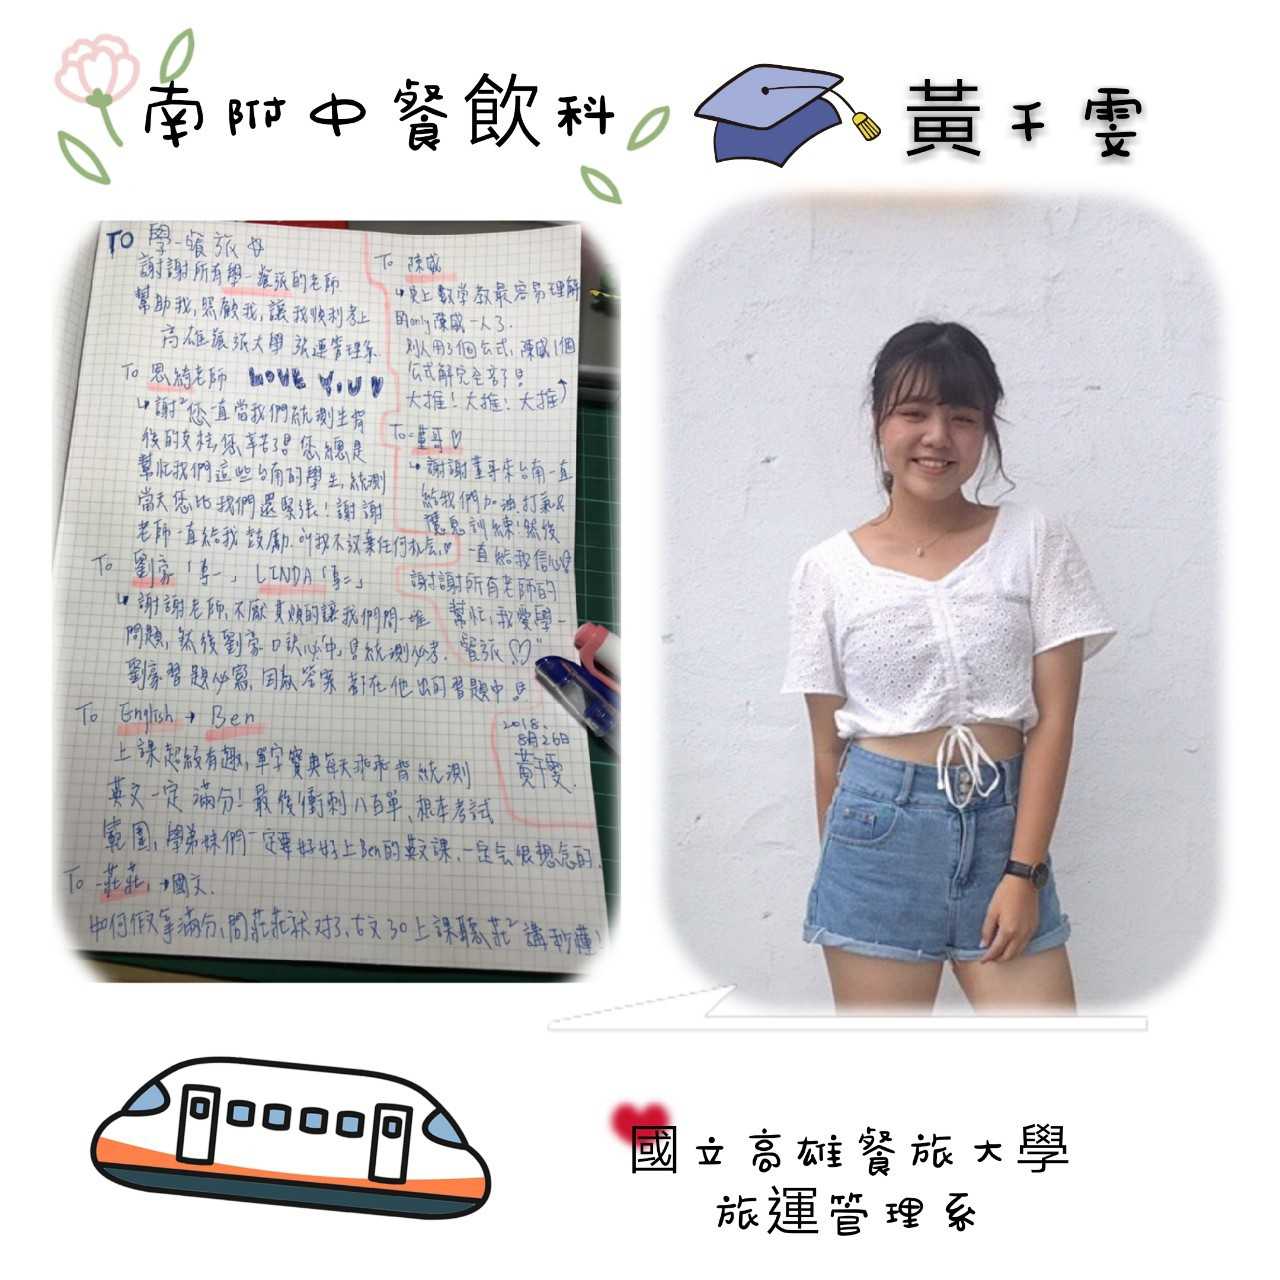 南附中餐飲科
黃千雯
TO 學一餐旅
謝謝所有學一餐旅的老師
幫助我,照顧我,讓我順利考上
高雄餐旅大學 旅運管理系
To 恩綺老師 LOVE YOU
謝²您一直當我們統測生背
後的支柱,您辛苦了!您總是
幫忙我們這些台南的學生,統測
當天您比我們還緊張!謝謝
老師一直給我鼓勵.叫我不放棄任何機會.♡
To 劉豪「專一」 LINDA「專二」
謝謝老師,不厭其煩的讓我們問一堆
問題,然後劉豪口訣必中,且統測必考.
劉豪習題必寫,因為答案都在他出的習題中!
To English → Ben
上課超級有趣,單字寶典每天乖乖背統測
英文一定滿分!最後衝刺八百單、根本考試
範圍,學弟妹們一定要好好上Ben的英文課,一定會很想念的.
To 莊莊 → 國文.
如何作文拿滿分,問莊莊就對了,古文30上課聽莊²講秒懂!
To 陳威
史上數學教最容易理解
的only陳威一人了.
別人用3個公式,陳威1個
公式解完全部了!
大推!大推!大推
To 董哥♡
謝謝董哥來台南一直
給我們加油.打氣&
應急訓練!然後
一直給我信心
謝謝所有老師的
幫忙,我愛學一
餐旅♡"
2018.
8月26日
黃千雯.
國立高雄餐旅大學
旅運管理系